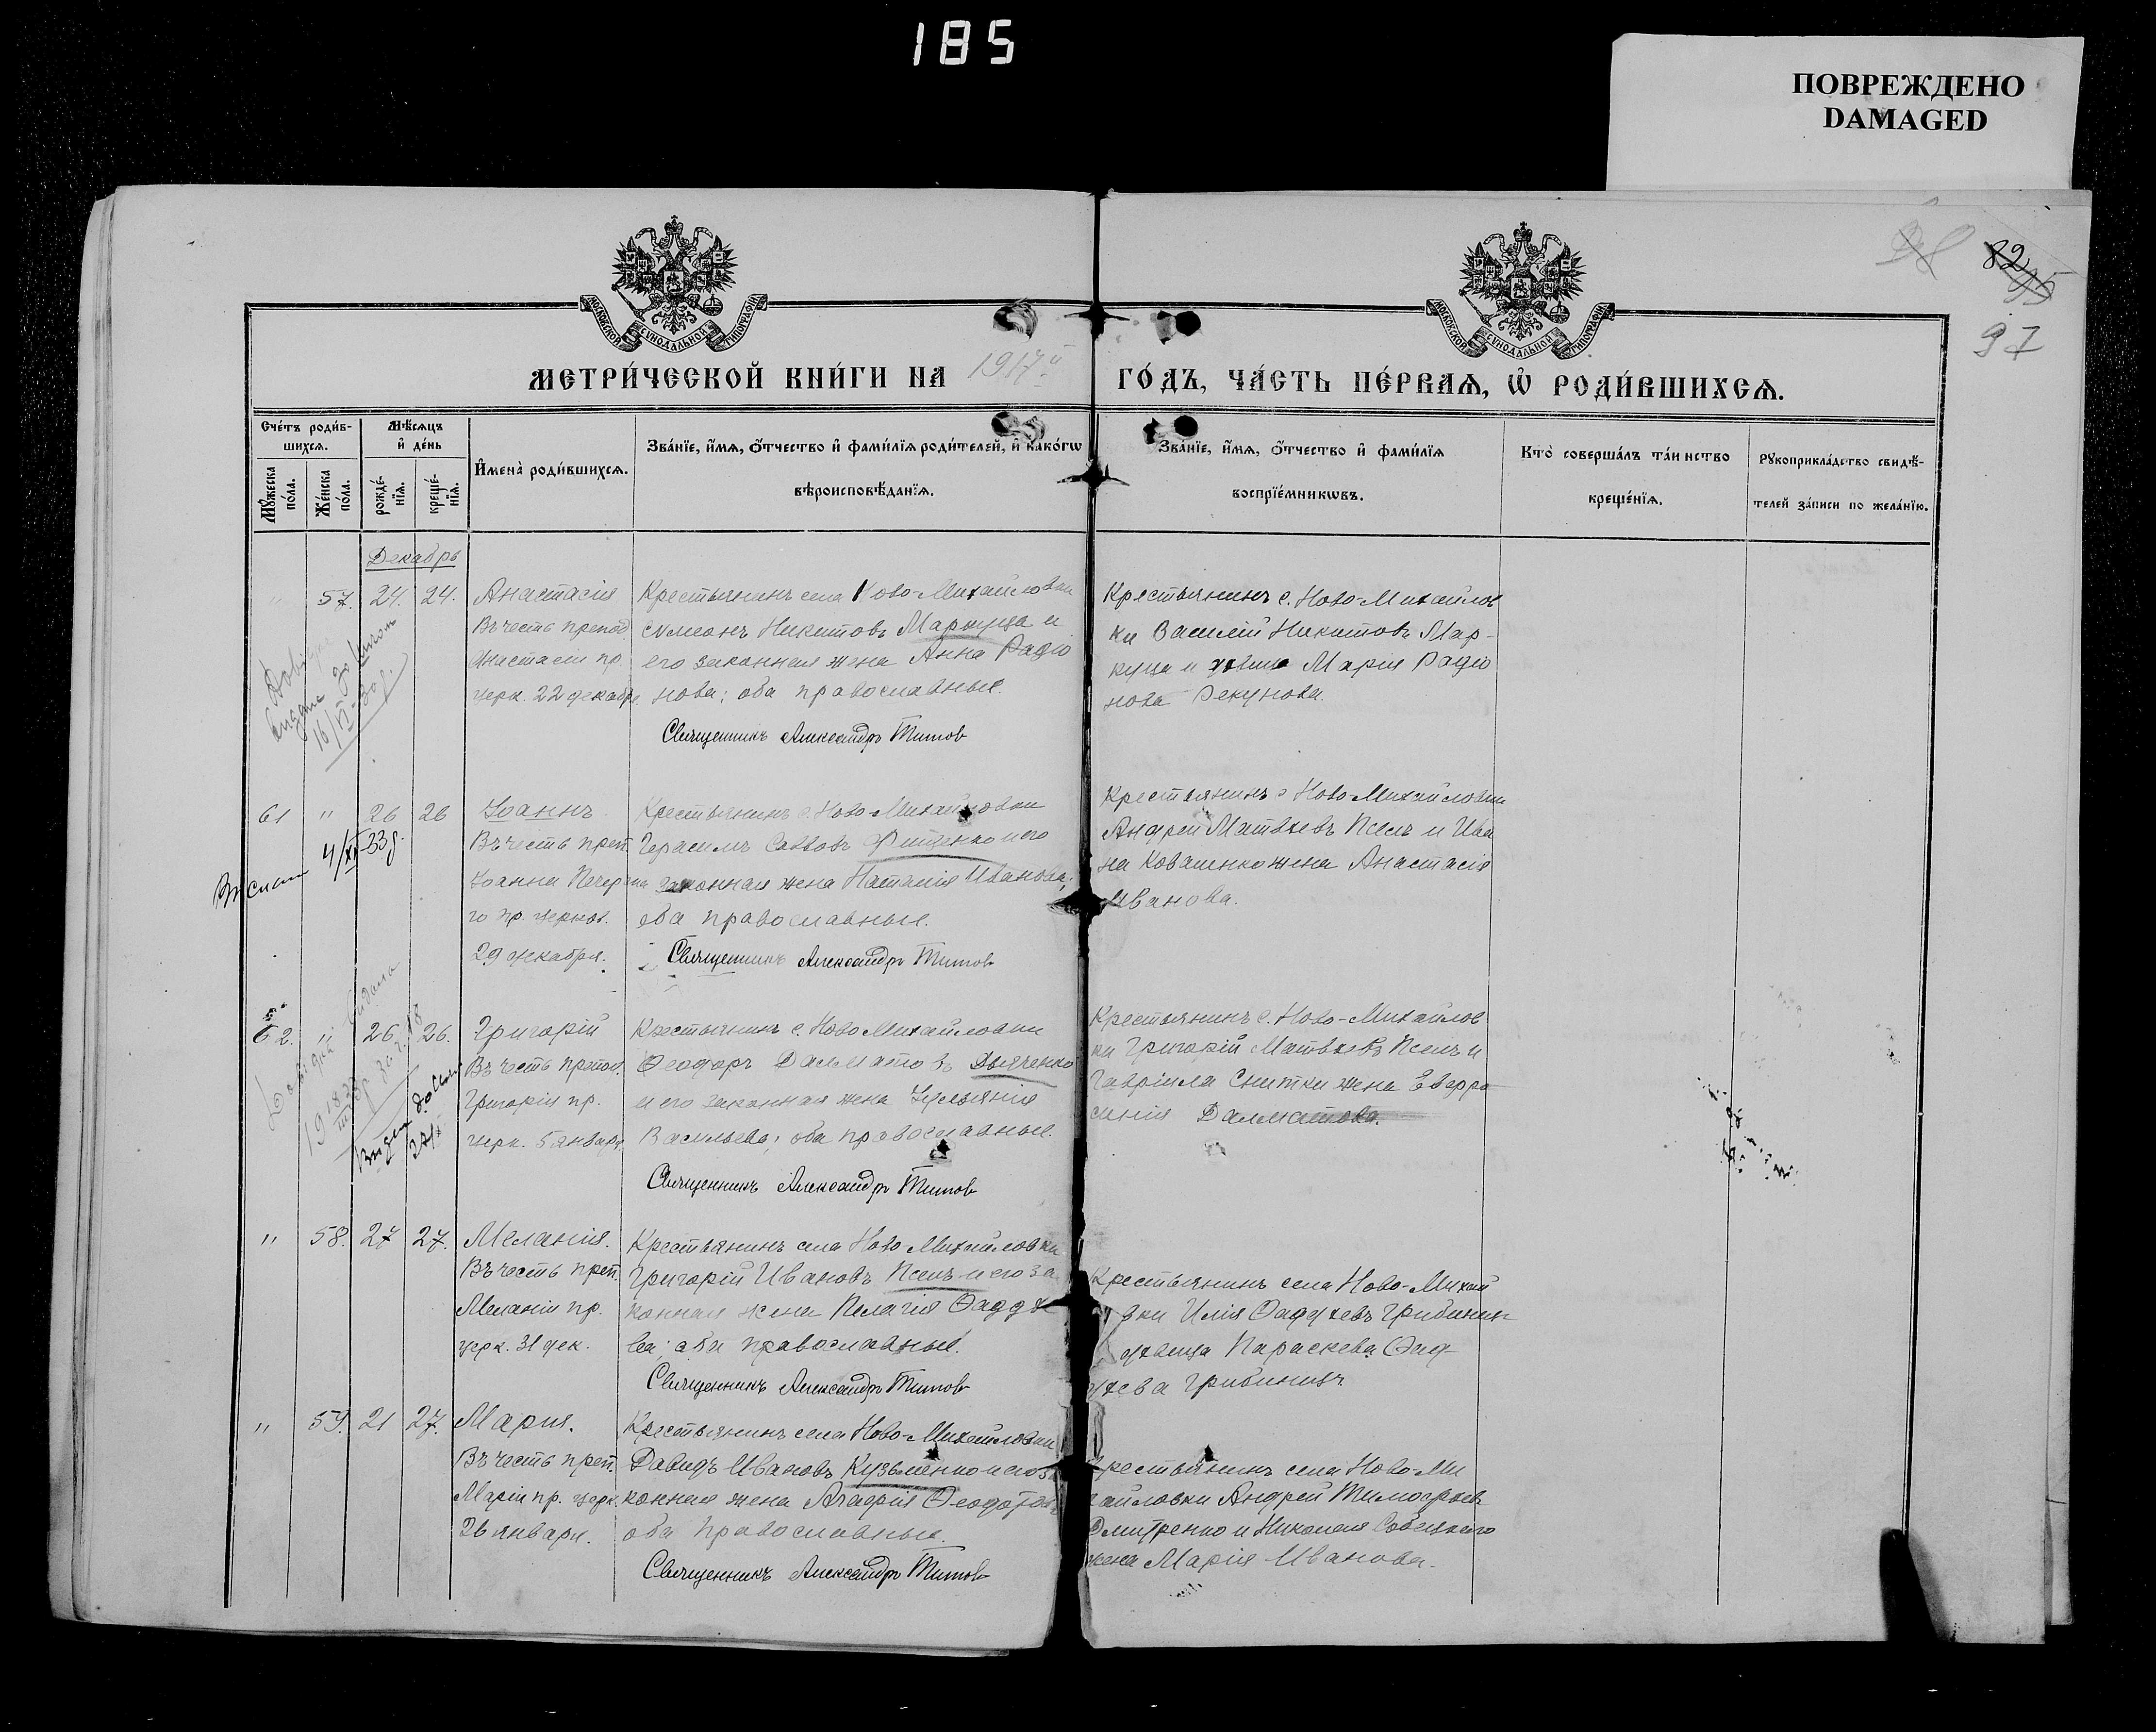 185
ПОВРЕЖДЕНО
DAMAGED
82
95
97
МОСКОВСКОЙ СѴНОДАЛЬНОЙ ТИПОГРАФІИ
МОСКОВСКОЙ СѴНОДАЛЬНОЙ ТИПОГРАФІИ
МЕТРИ́ЧЕСКОЙ КНИ́ГИ НА 1917й ГО́ДЪ, ЧА́СТЬ ПЕ́РВАѦ, Ѡ҆ РОДИ́ВШИХСѦ.
Сче́тъ роди́в-
шихсѧ.
Мꙋ́жеска по́ла.
Же́нска по́ла.
Мѣ́сѧцъ
и҆ де́нь
рожде́-
нїѧ.
креще́-
нїѧ.
И҆мена̀ роди́вшихсѧ.
Зва́нїе, и҆́мѧ, ѻ҆́тчество и҆ фами́лїѧ роди́телей, и҆ како́гѡ
вѣроисповѣ́данїѧ.
Зва́нїе, и҆́мѧ, ѻ҆́тчество и҆ фами́лїѧ
воспрїе́мникѡвъ.
Кто̀ соверша́лъ та́инство
креще́нїѧ.
Рꙋкоприкла́дство свидѣ́-
телей за́писи по жела́нїю.
Декабрь
" 57. 24. 24.
Анастасія
Въ честь препод.
Анастасіи пр.
церк. 22 декабр.
Крестьянинъ села Ново-Михайловки
Сѵмеонъ Никитовъ Маркуца и
его законная жена Анна Радіо
нова; оба православные.
Священникъ Александръ Титовъ
Крестьянинъ с. Ново-Михайлов
ки Василій Никитовъ Мар-
куца и Марія Радіо
нова Рекунова.
выдана
16/VI-30
61 " 26 26
4/XI-33 г.
Іоаннъ
Въ честь преп.
Іоанна Печерска
го пр. церков.
29 декабря.
Крестьянинъ с. Ново-Михайловки
Герасимъ Саввовъ Фещенко и его
законная жена Наталія Иванова;
оба православные.
Священникъ Александръ Титовъ
Крестьянинъ с Ново-Михайловки
Андрей Матвѣевъ Пселъ и Ива
на Коваленко жена Анастасія
Иванова.
62. " 26. 26.
Григорій
Въ честь препод.
Григорія пр.
церк. 5 января
Крестьянинъ с. Ново Михайловки
Ѳеодоръ Далматовъ Дьяченко
и его законная жена Іуліанія
Васильева; оба православные.
Священникъ Александръ Титовъ
Крестьянинъ с. Ново-Михайлов
ки Григорій Матвѣевъ Пселъ и
Гавріила Снитки жена Евфро
синія Далматова.
" 58. 27 27.
Меланія.
Въ честь преп.
Меланіи пр.
церк. 31 дек.
Крестьянинъ села Ново Михайловки
Григорій Ивановъ Пселъ и его за
конная жена Пелагія Ѳаддѣ
ва; оба православные.
Священникъ Александръ Титовъ
Крестьянинъ села Ново-Михай
вки Илія Ѳаддѣевъ Грибиникъ
дѣвица Параскева Ѳад-
дѣева Грибиникъ
" 59. 21 27.
Марія.
Въ честь преп.
Маріи пр. церк.
26 января.
Крестьянинъ села Ново-Михайловки
Давидъ Ивановъ Кузьменко и его за
конная жена Агафія Ѳеодотова
оба православные.
Священникъ Александръ Титовъ
рестьянинъ села Ново-Ми
хайловки Андрей Тимофѣевъ
Дмитренко и Николая Собецкаго
жена Марія Иванова.